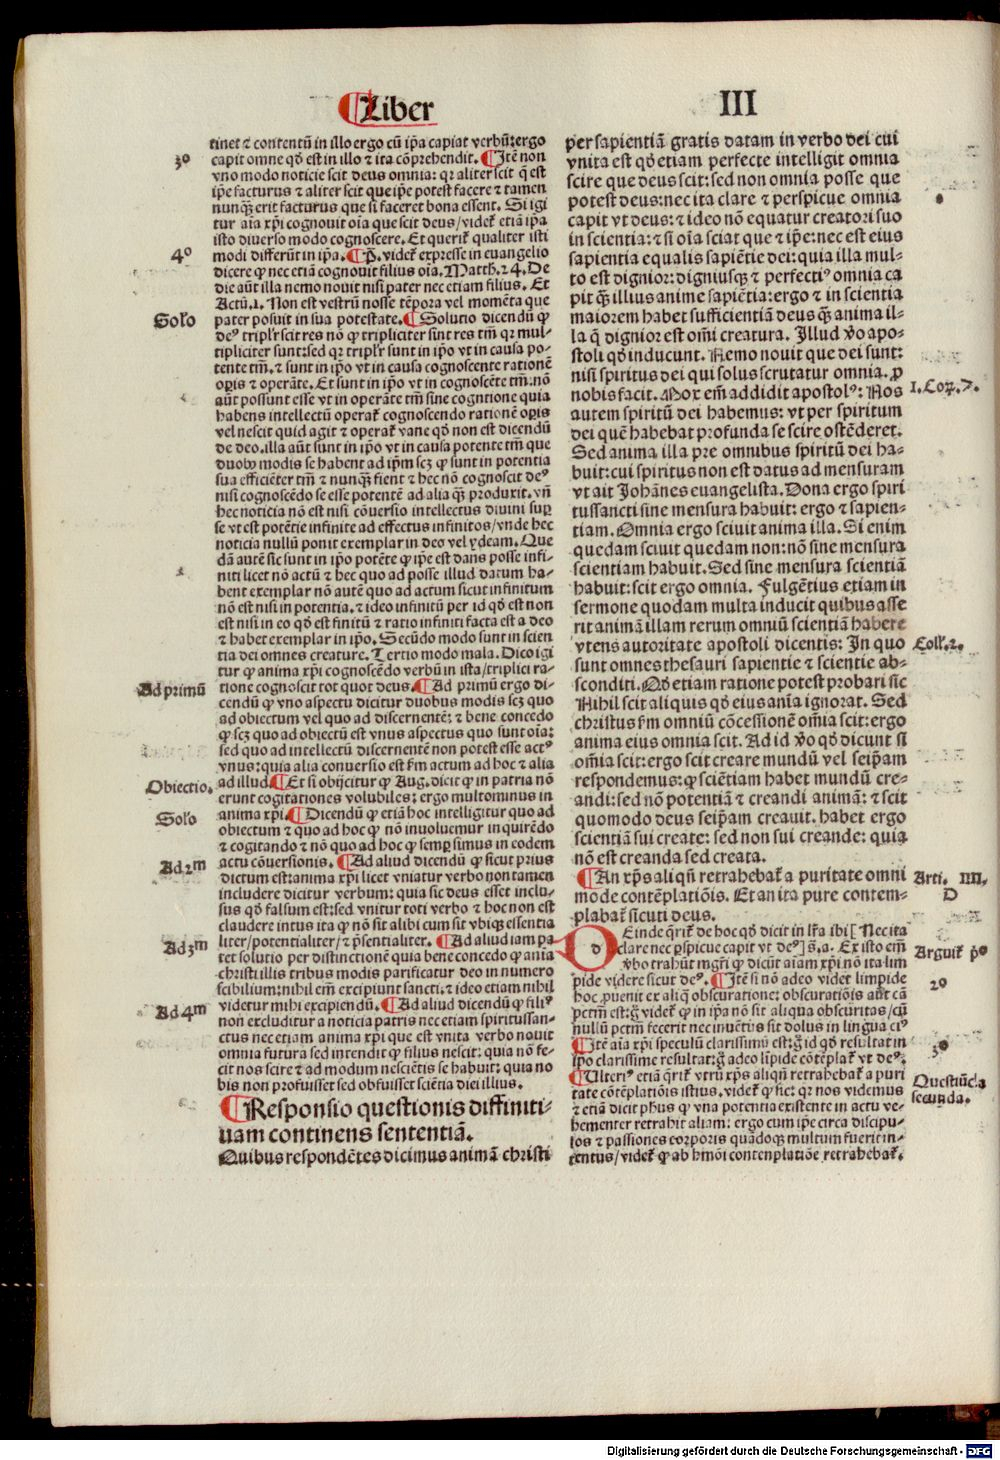 ¶Liber
III
tinet ⁊ contentū in illo ergo cū ip̄a capiat verbū: ergo
capit omne qd̄ est in illo ⁊ ita cōprehendit. ¶Itē non
3º
vno modo noticie scit deus omnia: qr aliter scit q̄ est
ip̄e facturus ⁊ aliter scit que ip̄e potest facere ⁊ tamen
nunq̄ȝ erit facturus que si faceret bona essent. Si igi
tur aīa xp̄i cognouit oīa que scit deus/videt̄ etiā ip̄a
isto diuerso modo cognoscere. Et querit̄ qualiter isti
modi differūt in ip̄a. ¶P̄. videt̄ expresse in euangelio
4º
dicere ꝙ nec etiā cognouit filius oīa. Matth. 24. De
die aūt illa nemo nouit nisi pater nec etiam filius. Et
Actū. 1. Non est vestrū nosse tēpora vel momēta que
pater posuit in sua potestate. ¶Solutio dicendū ꝙ
Solo
deꝰ triplr̄ scit res nō ꝙ tripliciter sint res tm̄ qr mul-
tipliciter sunt: sed qr triplr̄ sunt in ip̄o vt in causa po-
tente tm̄. ⁊ sunt in ip̄o vt in causa cognoscente rationē
oꝑis ⁊ operāte. Et sunt in ip̄o vt in cognoscēte tm̄: nō
aūt possunt esse vt in operāte tm̄ sine cogntione quia
habens intellectū operat̄ cognoscendo rationē oꝑis
vel nescit quid agit ⁊ operat̄ vane qd̄ non est dicendū
de deo. illa aūt sunt in ip̄o vt in causa potente tm̄ que
duobꝰ modis se habent ad ip̄m scȝ ꝙ sunt in potentia
sua efficiēter tm̄ ⁊ nunq̄ȝ fient ⁊ hec nō cognoscit deꝰ
nisi cognoscēdo se esse potentē ad alia q̄ȝ produxit. vñ
hec noticia nō est nisi cōuersio intellectus diuini suꝑ
se vt est potētie infinite ad effectus infinitos/vnde hec
noticia nullū ponit exemplar in deo vel ydeam. Que
dā autē sic sunt in ip̄o potēte ꝙ ip̄e est dans posse infi-
niti licet nō actū ⁊ hec quo ad posse illud datum ha-
bent exemplar nō autē quo ad actum sicut infinitum
nō est nisi in potentia. ⁊ ideo infinitū per id qd̄ est non
est nisi in eo qd̄ est finitū ⁊ ratio infiniti facta est a deo
⁊ habet exemplar in ip̄o. Secūdo modo sunt in scien
tia dei omnes creature. Tertio modo mala. Dico igi
tur ꝙ anima xp̄i cognoscēdo verbū in ista/triplici ra-
tione cognoscit tot quot deus. ¶Ad primū ergo di-
Ad primū
cendū ꝙ vno aspectu dicitur duobus modis scȝ quo
ad obiectum vel quo ad discernentē: ⁊ bene concedo
ꝙ scȝ quo ad obiectū est vnus aspectus quo sunt oīa:
sed quo ad intellectū discernentē non potest esse actꝰ
vnus: quia alia conuersio est fm̄ actum ad hoc ⁊ alia
ad illud. ¶Et si obijcitur ꝙ Aug. dicit ꝙ in patria nō
Obiectio.
erunt cogitationes volubiles: ergo multominus in
anima xp̄i. ¶Dicendū ꝙ etiā hoc intelligitur quo ad
Solo
obiectum ⁊ quo ad hoc ꝙ nō inuoluemur in quirēdo
⁊ cogitando ⁊ nō quo ad hoc ꝙ semꝑ simus in eodem
actu cōuersionis. ¶Ad aliud dicendū ꝙ sicut prius
Ad 2m
dictum est: anima xp̄i licet vniatur verbo non tamen
includere dicitur verbum: quia sic deus esset inclu-
sus qd̄ falsum est: sed vnitur toti verbo ⁊ hoc non est
claudere intus ita ꝙ nō sit alibi cum sit vbiqȝ essentia
liter/potentialiter/⁊ p̄sentialiter. ¶Ad aliud iam pa
Ad 3m
tet solutio per distinctionē quia bene concedo ꝙ aīa
christi illis tribus modis parificatur deo in numero
scibilium: nihil em̄ excipiunt sancti. ⁊ ideo etiam nihil
videtur mihi excipiendū. ¶Ad aliud dicendū ꝙ filiꝰ
Ad 4m
non excluditur a noticia patris nec etiam spiritussan-
ctus nec etiam anima xp̄i que est vnita verbo nouit
omnia futura sed intendit ꝙ filius nescit: quia nō fe-
cit nos scire ⁊ ad modum nesciētis se habuit: quia no
bis non profuisset sed obfuisset sciētia diei illius.
¶Responsio questionis diffiniti-
uam continens sententiā.
Quibus respondētes dicimus animā christi
per sapientiā gratis datam in verbo dei cui
vnita est qd̄ etiam perfecte intelligit omnia
scire que deus scit: sed non omnia posse que
potest deus: nec ita clare ⁊ perspicue omnia
capit vt deus: ⁊ ideo nō equatur creatori suo
in scientia: ⁊ si oīa sciat que ⁊ ip̄e: nec est eius
sapientia equalis sapiētie dei: quia illa mul-
to est dignior: digniusqȝ ⁊ perfectiꝰ omnia ca
pit q̄ȝ illius anime sapiētia: ergo ⁊ in scientia
maiorem habet sufficientiā deus q̄ȝ anima il-
la q̄ dignior est om̄i creatura. Illud v̄o apo-
stoli qd̄ inducunt. Nemo nouit que dei sunt:
nisi spiritus dei qui solus scrutatur omnia. ꝓ
nobis facit. Mox em̄ addidit apostolꝰ: Nos
1. Coꝝ. 7.
autem spiritū dei habemus: vt per spiritum
dei quē habebat profunda se scire ostēderet.
Sed anima illa pre omnibus spiritū dei ha-
buit: cui spiritus non est datus ad mensuram
vt ait Johānes euangelista. Dona ergo spiri
tussancti sine mensura habuit: ergo ⁊ sapien-
tiam. Omnia ergo sciuit anima illa. Si enim
quedam sciuit quedam non: nō sine mensura
scientiam habuit. Sed sine mensura scientiā
habuit: scit ergo omnia. Fulgētius etiam in
sermone quodam multa inducit quibus asse
rit animā illam rerum omniū scientiā habere
vtens autoritate apostoli dicentis: In quo
Coll̄. 2.
sunt omnes thesauri sapientie ⁊ scientie ab-
sconditi. Qd̄ etiam ratione potest probari sic
Nihil scit aliquis qd̄ eius aīa ignorat. Sed
christus fm̄ omniū cōcessionē om̄ia scit: ergo
anima eius omnia scit. Ad id v̄o qd̄ dicunt si
om̄ia scit: ergo scit creare mundū vel seip̄am
respondemus: ꝙ sciētiam habet mundū cre-
andi: sed nō potentiā ⁊ creandi animā: ⁊ scit
quomodo deus seip̄am creauit. habet ergo
scientiā sui create: sed non sui creande: quia
nō est creanda sed creata.
¶An xp̄s aliqn̄ retrahebat̄ a puritate omni
Arti. IIII.
mode contēplatiōis. Et an ita pure contem-
D
plabat̄ sicuti deus.
DEinde q̄rit̄ de hoc qd̄ dicit in lr̄a ibi [Nec ita
clare nec ꝑspicue capit vt deꝰ] s. a. Ex isto em̄
Arguit̄ p̄o
v̄bo trahūt mgr̄i ꝙ dicūt aīam xp̄i nō ita lim
pide videre sicut deꝰ. ¶Itē si nō adeo videt limpide
2º
hoc ꝓuenit ex aliq̄ obscuratione: obscuratiōis aūt cā
pctm̄ est: ḡ videt̄ ꝙ in ip̄a nō sit aliqua obscuritas/cū
nullū pctm̄ fecerit nec inuētis sit dolus in lingua eiꝰ
¶Itē aīa xp̄i speculū clarissimū est: ḡ id qd̄ resultat in
3º
ip̄o clarissime resultat: ḡ adeo lī̄pide cōtēplat̄ vt deꝰ.
¶Ulteriꝰ etiā q̄rit̄ vtrū xp̄s aliqn̄ retrahebat̄ a puri
Questiūcla
tate cōtēplatiōis istius. videt̄ ꝙ sic: qr nos videmus
secunda.
⁊ etiā dicit phūs ꝙ vna potentia existente in actu ve-
hementer retrahit aliam: ergo cum ip̄e circa discipu-
los ⁊ passiones corporis quādoqȝ multum fuerit in-
tentus/videt̄ ꝙ ab hmōi contemplatiōe retrahebat̄.
Digitalisierung gefördert durch die Deutsche Forschungsgemeinschaft - DFG